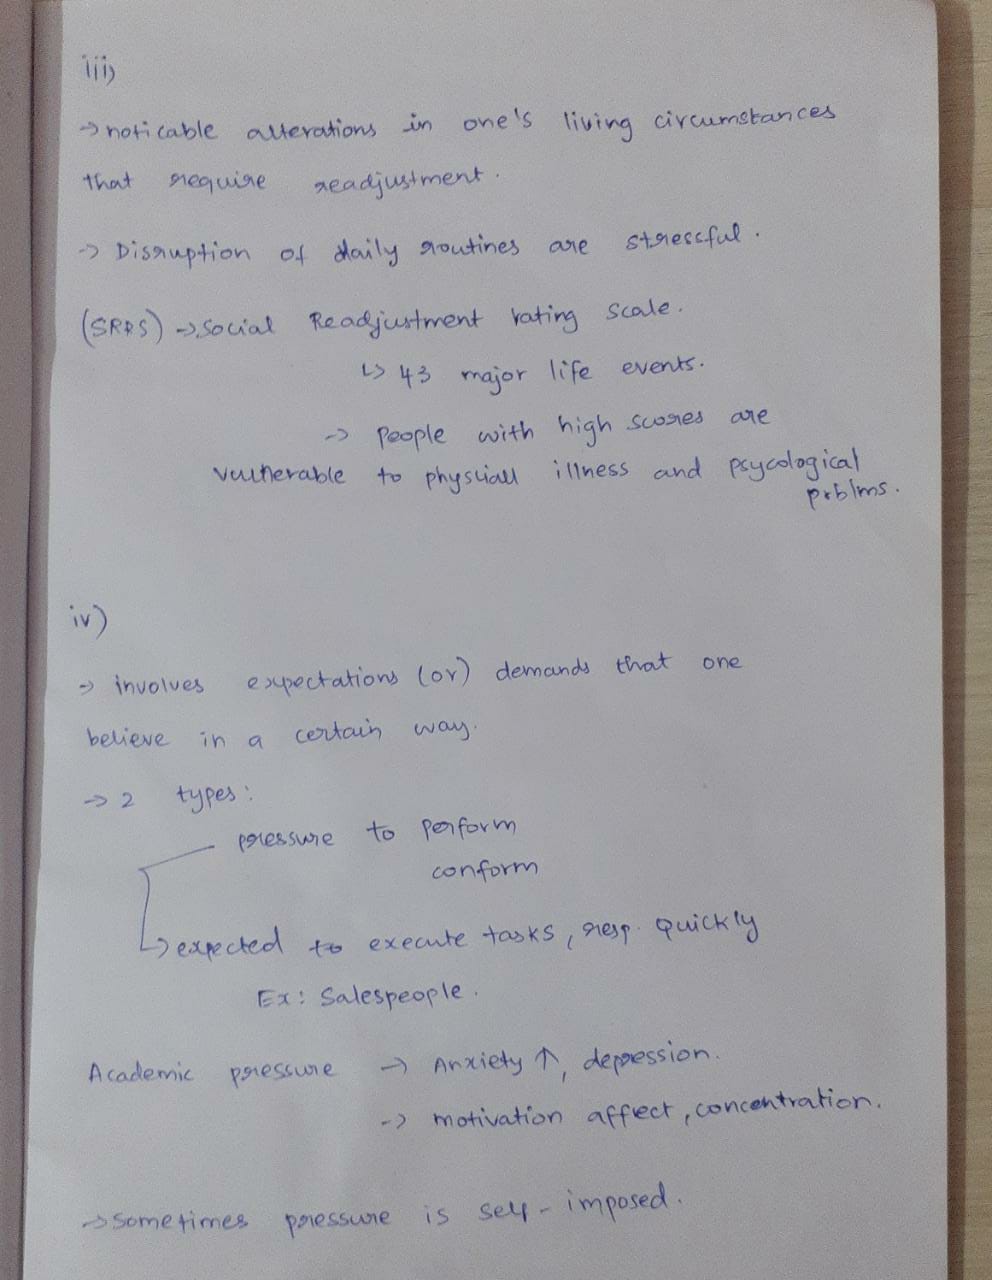 iii)
→ noticable alterations in one's living circumstances
that require readjustment.
→ Disruption of daily routines are stressful.
(SRRS) → Social Readjustment rating scale.
↳ 43 major life events.
→ people with high scores are
vulnerable to physiall illness and psycological
prblms.
iv)
→ involves expectations (or) demands that one
believe in a certain way.
→ 2 types:
pressure to perform
conform
↳ expected to execute tasks, resp. quickly
Ex: Salespeople.
Academic pressure → Anxiety ↑, depression.
→ motivation affect, concentration.
→ sometimes pressure is self-imposed.